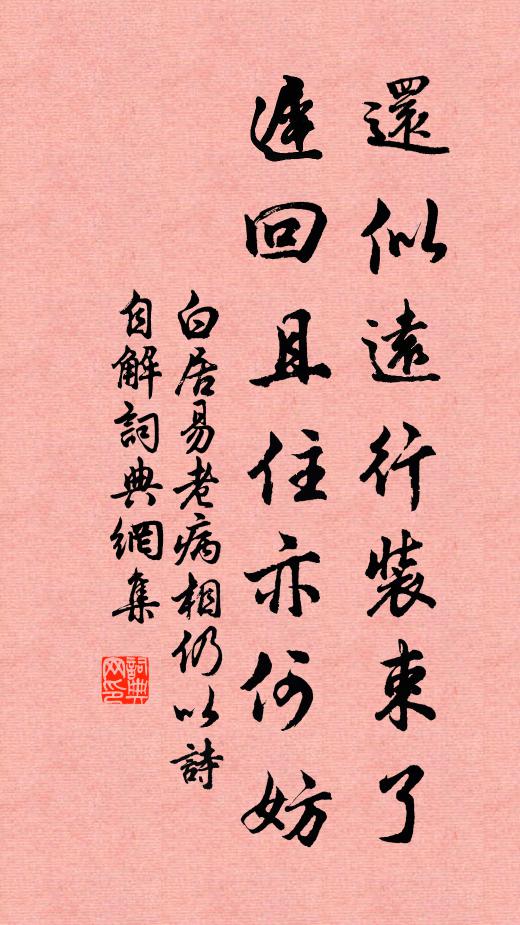 還似遠行裝束了
遲回且住亦何妨
白居易老病相仍以詩
自解詞典網集
詞典
网印